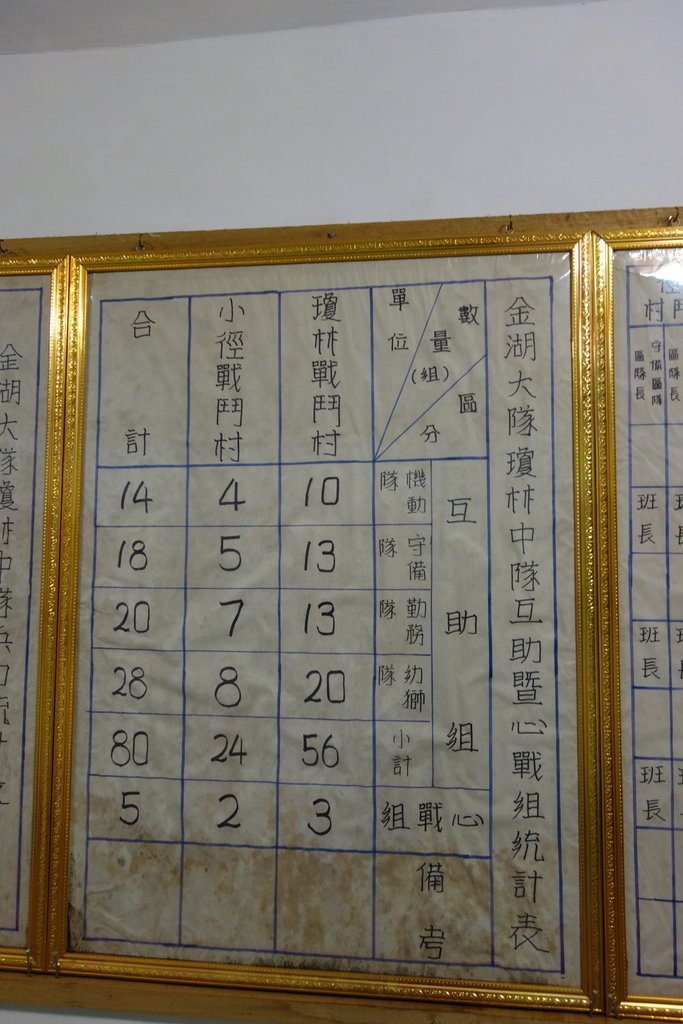 金湖大隊瓊林中隊互助暨心戰組統計表
數量(組)
區分
單位
互助組
機動隊
守備隊
勤務隊
幼獅隊
小計
心戰組
備考
瓊林戰鬥村
10
13
13
20
56
3
小徑戰鬥村
4
5
7
8
24
2
合計
14
18
20
28
80
5
村
守備區隊
區隊長
班長
班長
班長
金湖大隊瓊林中隊兵力